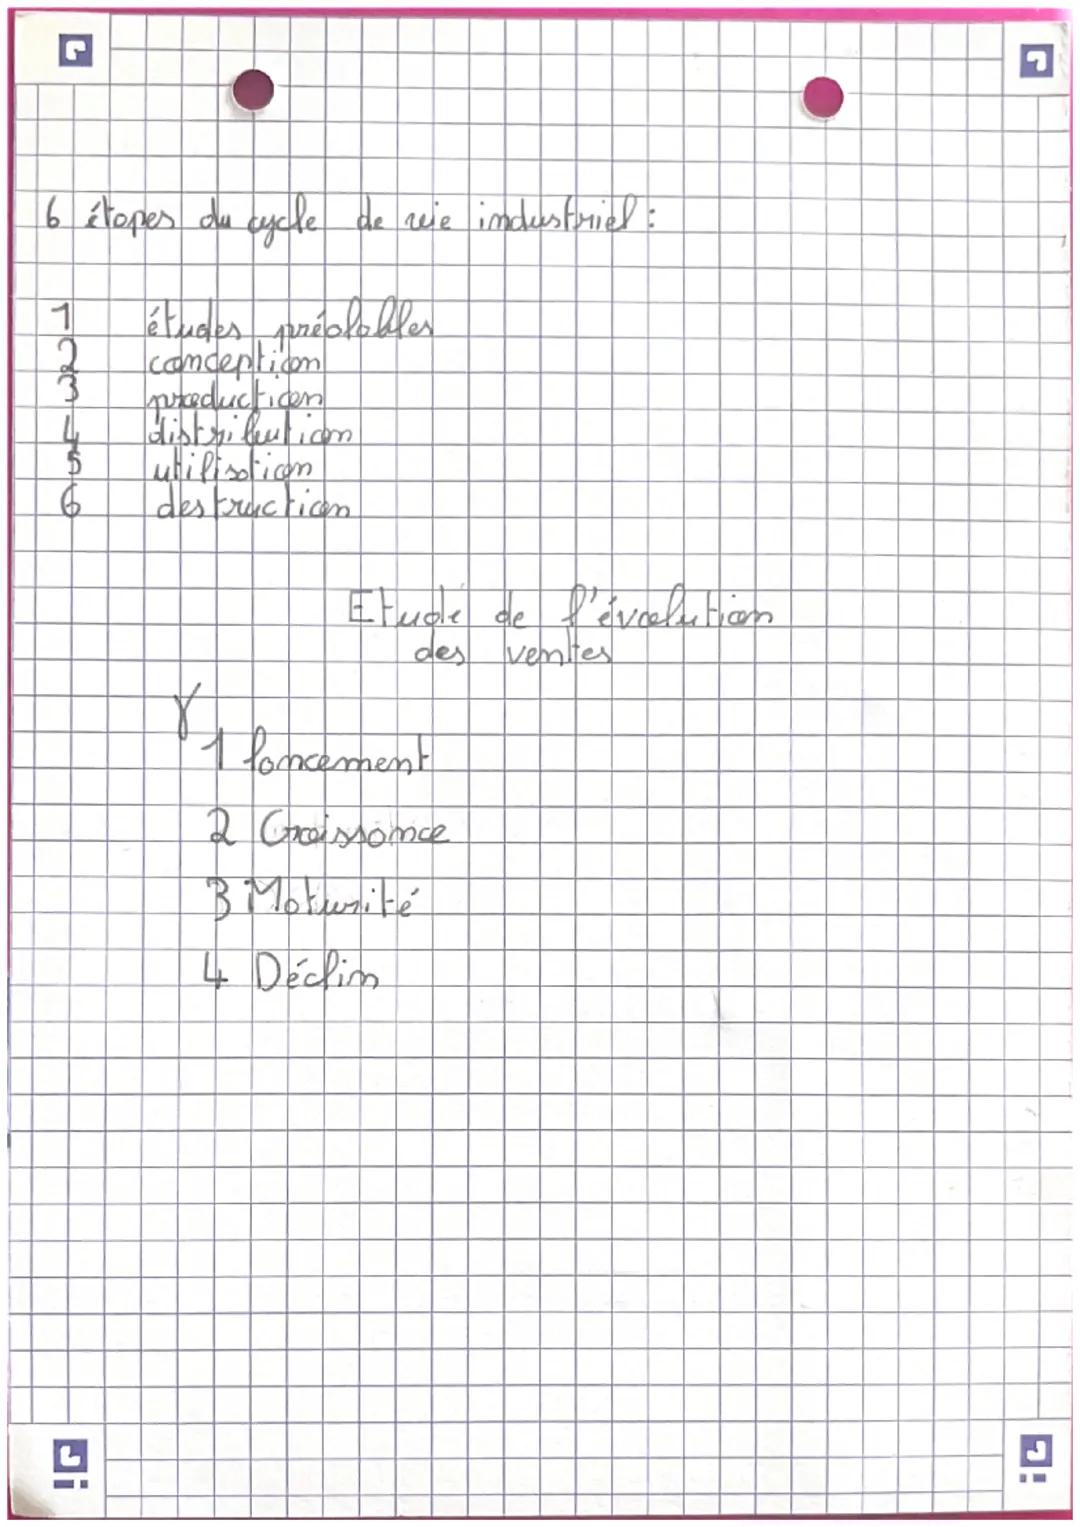 6 étapes du cycle de vie industriel :
1 études préalables
2 conception
3 production
4 distribution
5 utilisation
6 destruction
Etude de l'évolution
des ventes
1 lancement
2 Croissance
3 Maturité
4 Déclin